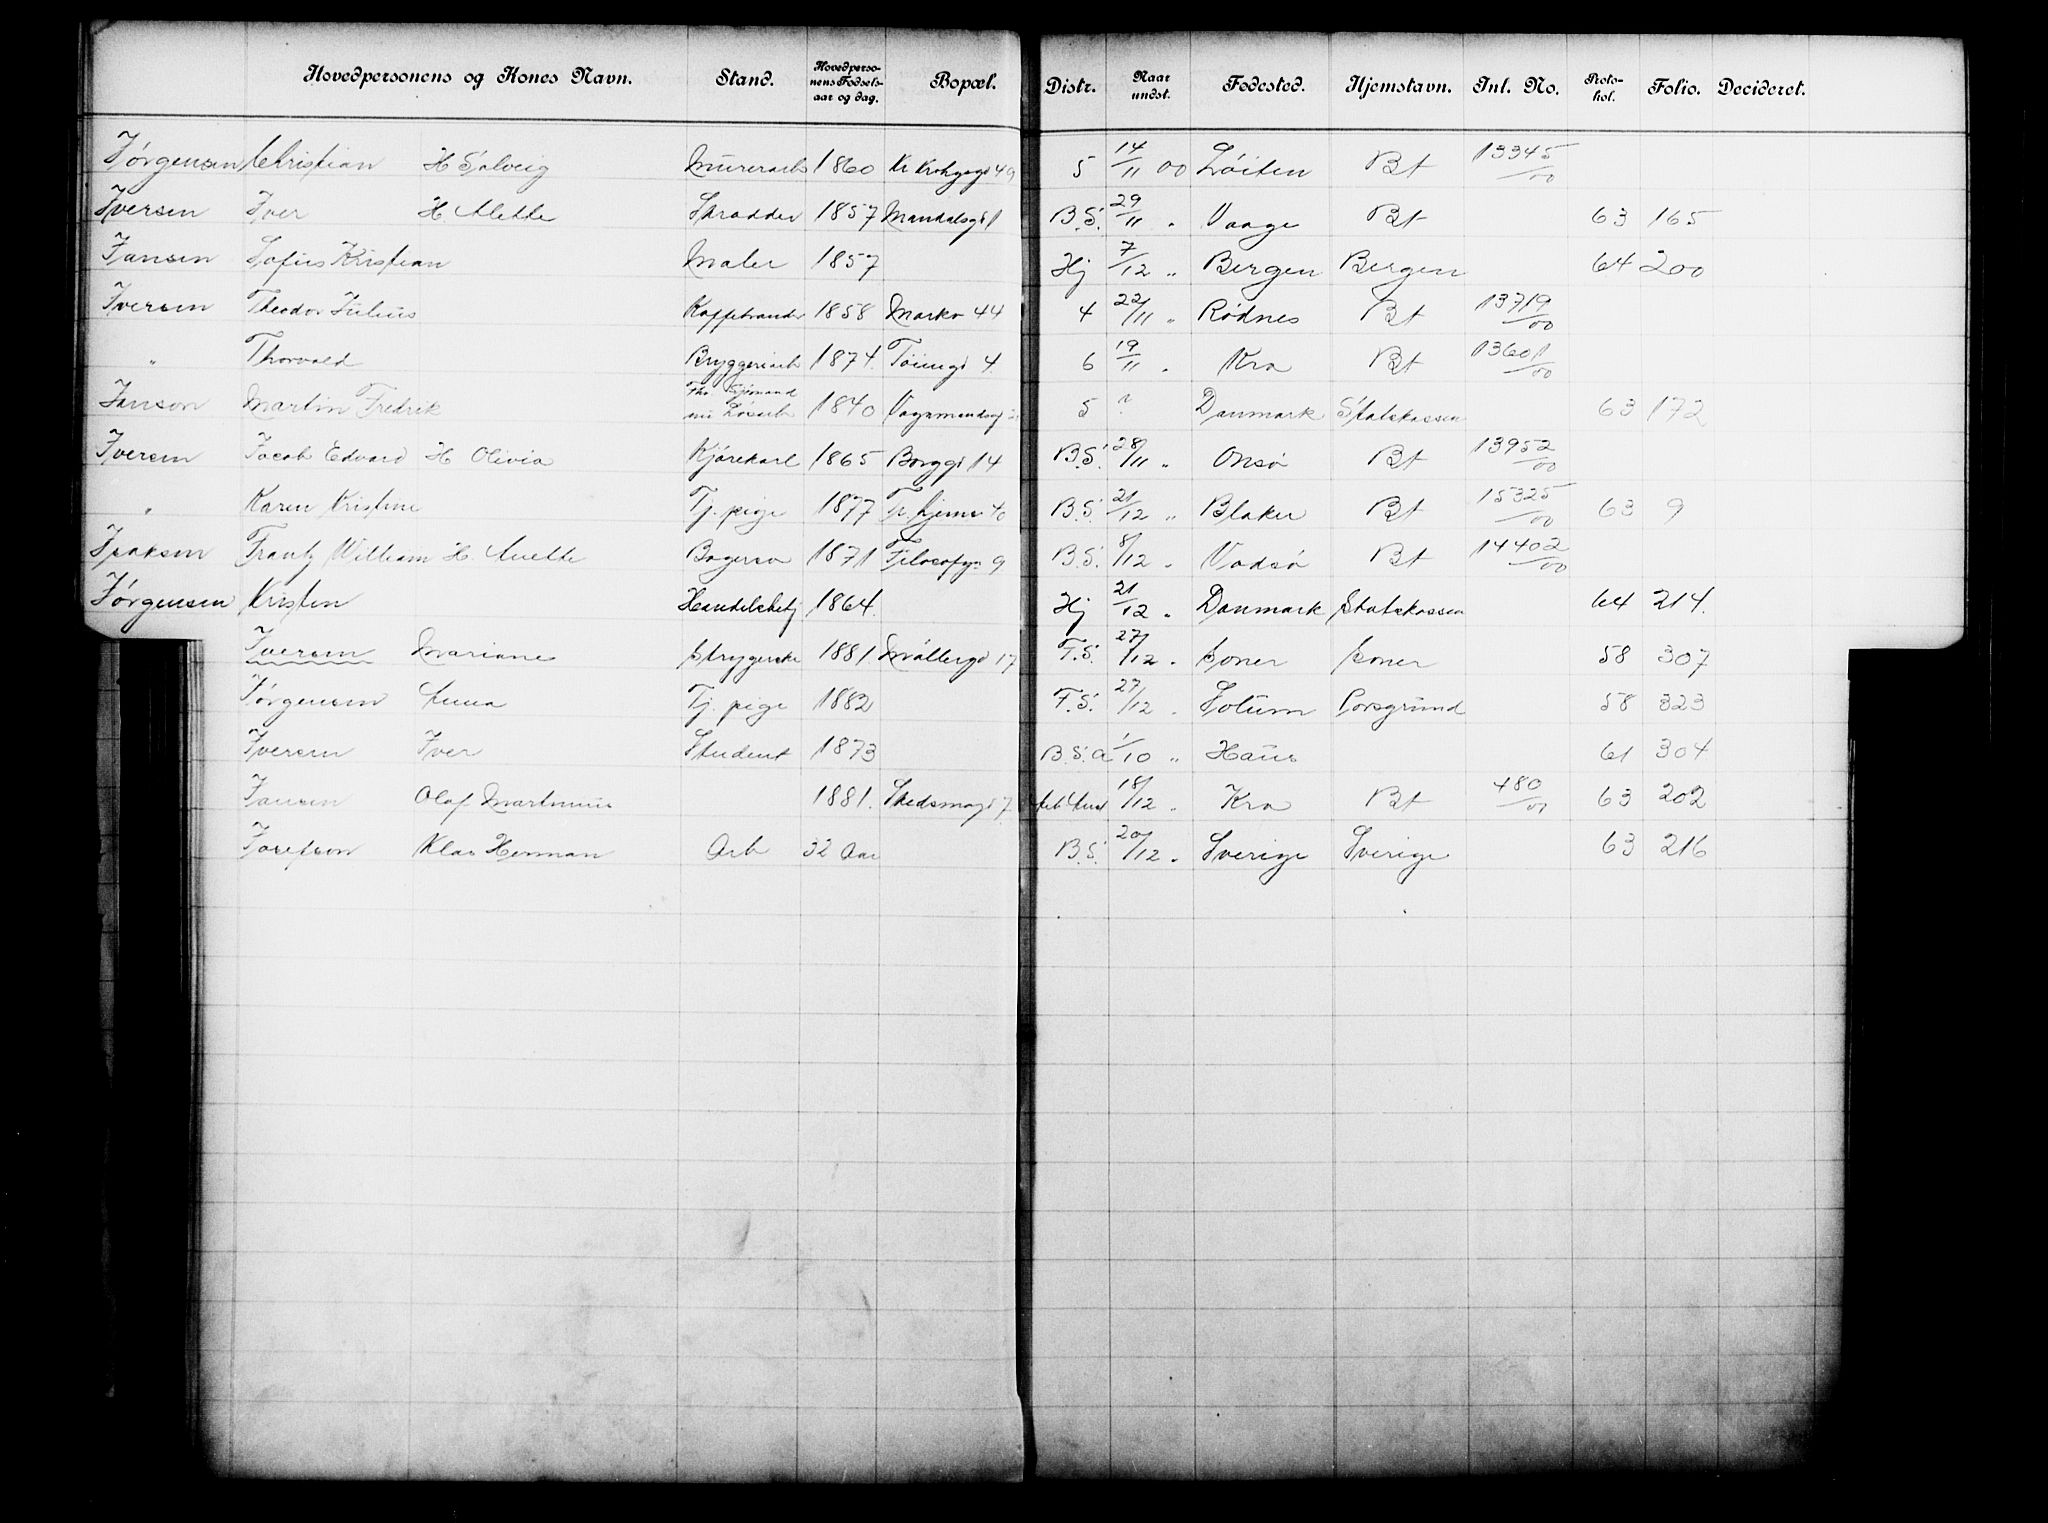 Hovedpersonens og Kones Navn. Stand. Hovedperso-nens Fødsels-aar og dag. Bopæl. Distr. Naar undst. Fødested. Hjemstavn. Inl. No. Proto-kol. Folio. Decideret.
Jørgensen Christian H Solveig Murerarb 1860 Kr Krohgsgd 49 5 14/11 00 Løiten Bt 13345/00
Iversen Iver H. Alette Skrædder 1857 Mandalsgd 1 B.S. 29/11 " Vaage Bt 63 165
Jansen Sofus Kristian Maler 1857 Hj 7/12 " Bergen Bergen 64 200
Iversen Theodor Julius Kaffebrander 1858 Markv 44 4 22/11 " Rødnes Bt 13719/00
" Thorvald Bryggeriarb 1874. Tøiengd 4. 6 19/11 " Kra Bt 13601/00
Janson Martin Fredrik Fhv. Sjømand nu Løsarb 1840 5 ? Danmark Statskassen 63 172
Iversen Jacob Edvard H Olivia Kjørekarl 1865 Borggd 14 B.S. 28/11 " Onsø Bt 13952/00
" Karen Kristine Tj. pige 1877 40 B.S. 21/12 " Blaker Bt 15325/00 63 9
Isaksen Frantz William H Anette Bogersv 1871 Filosofgn 9 B.S. 8/12 " Vadsø Bt 14402/00
Jørgensen Kristen Handelsbetj 1864. Hj 21/12 " Danmark Statskassen 64 214.
Iversen Mariane Strygerske 1881. Møllergd 17 F.S. 27/12 " Soner Soner 58 307
Jørgensen Anna Tj. pige 1882 F.S. 27/12 " Solum Porsgrund 58 323
Iversen Iver Student 1873 B.S. a 1/10 " Haus 61 304
Jansen Olaf Martinius 1881. Skedsmogd 7. 18/12 " Kra Bt 480/01 63 202
Josefson Klas Herman Arb 32 Aar B.S. 20/12 " Sverige Sverige 63 216